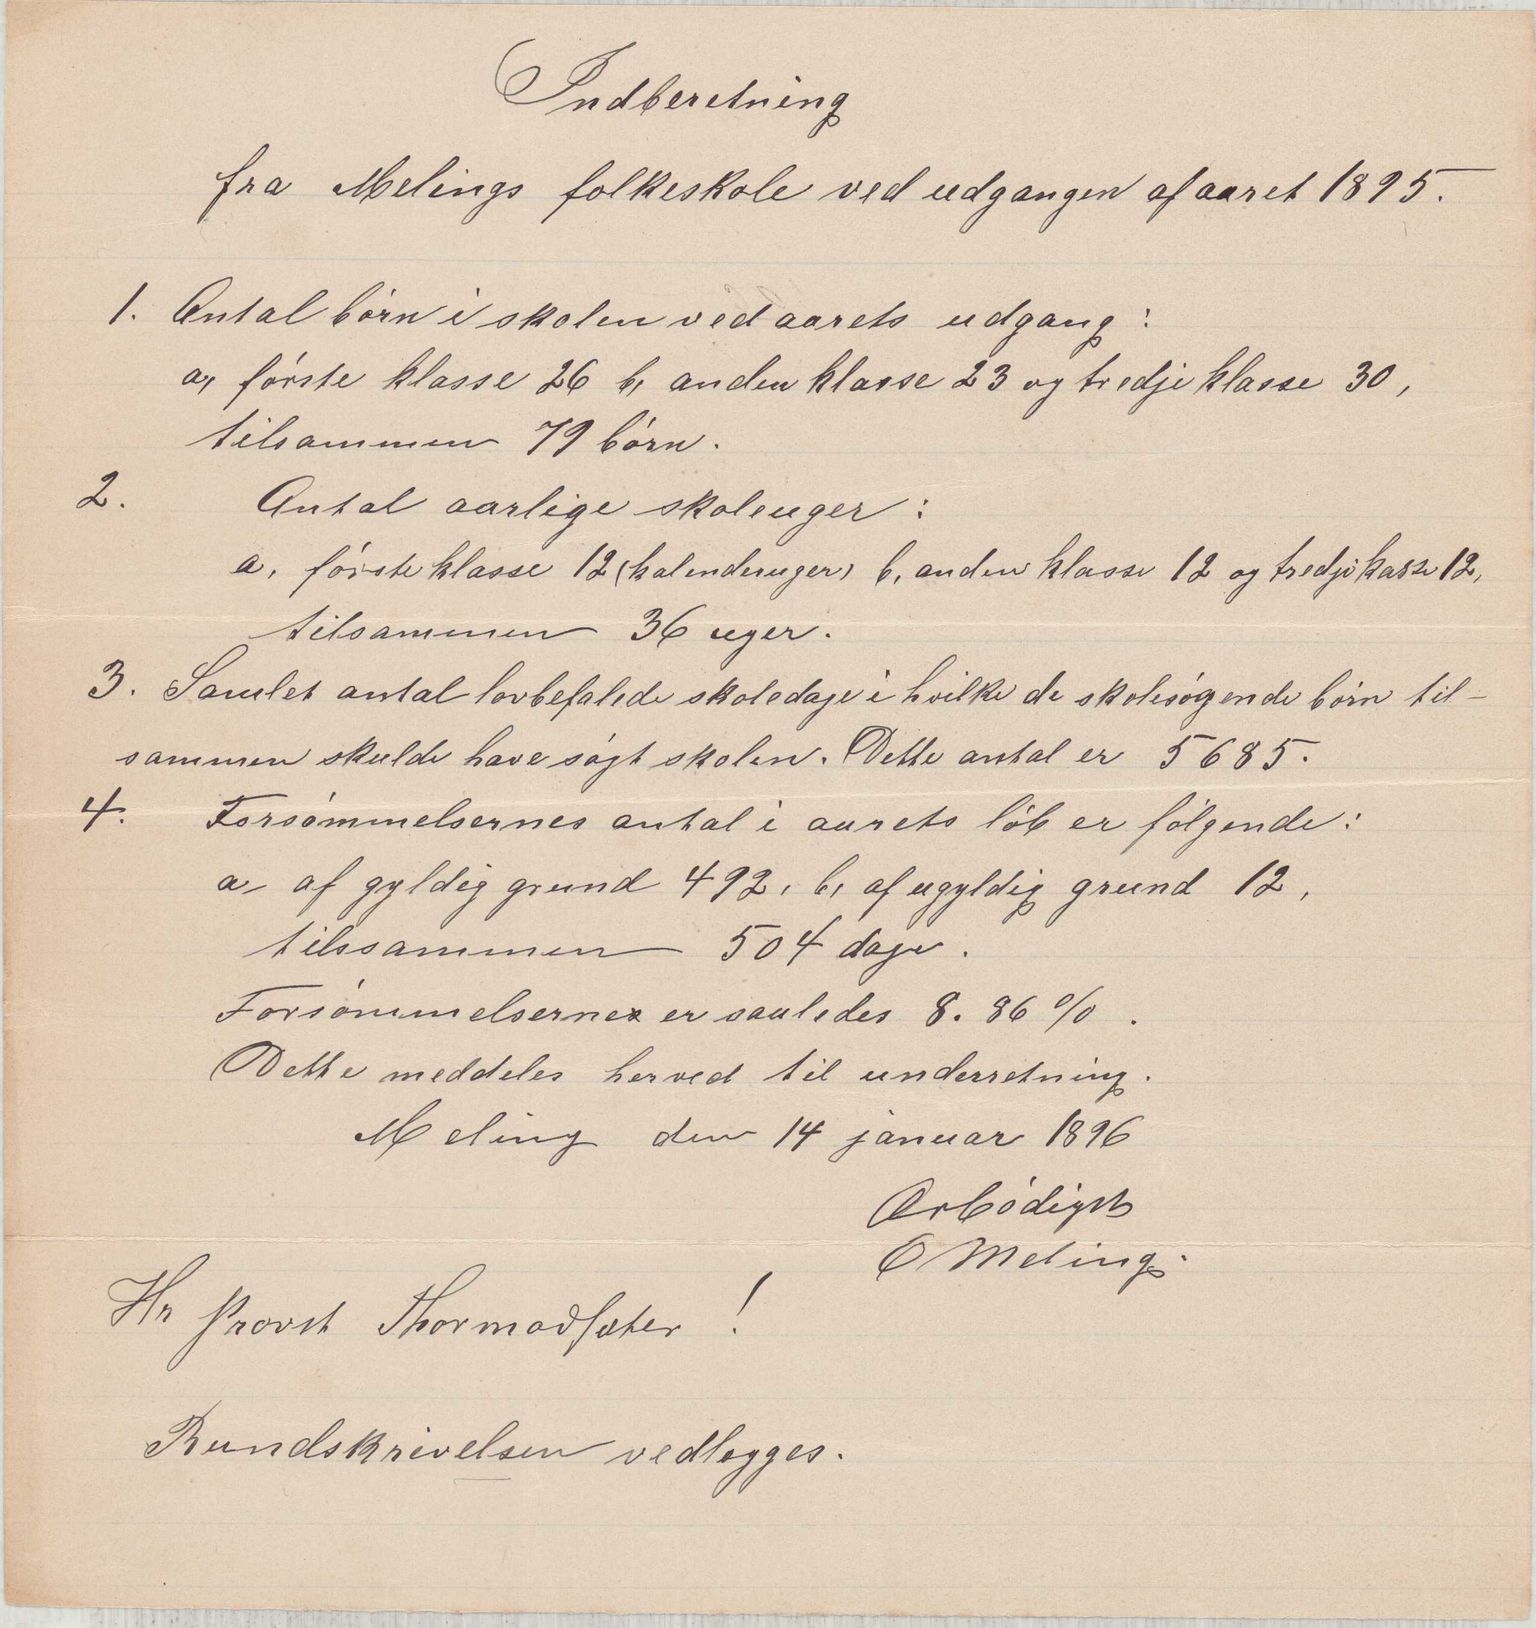 Indberetning
fra Melings folkeskole ved udgangen af aaret 1895.
1. Antal børn i skolen ved aarets udgang:
a, første klasse 26 b, anden klasse 23 og tredje klasse 30,
tilsammen 79 børn.
2. Antal aarlige skoleuger:
a, første klasse 12 (kalenderuger) b, anden klasse 12 og tredje kasse 12,
tilsammen 36 uger.
3. Samlet antal lovbefalede skoledage i hvilke de skolesøgende børn til-
sammen skulde have søgt skolen. Dette antal er 5685.
4. Forsømmelsernes antal i aarets løb er følgende:
a, af gyldig grund 492, b, af ugyldig grund 12,
tilssammen 504 dage.
Forsømmelserne er saaledes 8.86 %.
Dette meddeles herved til underretning.
Meling den 14 januar 1896
Ærbødigst
O Meling.
Hr Provst Thormodsæter!
Rundskrivelsen vedlegges.